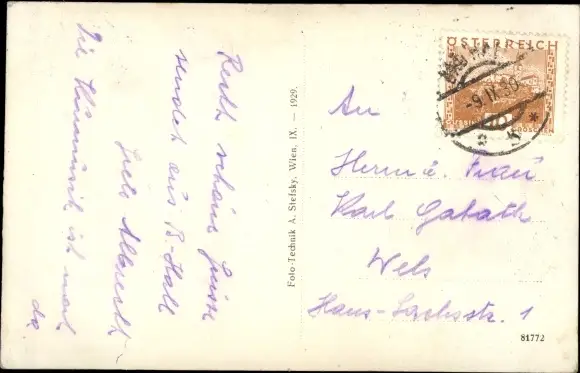 Recht schöne Grüsse
sendet aus B-Hall
Die Kurmusik ist noch
da
Foto-Technik A. Stefsky, Wien, IX. — 1929.
ÖSTERREICH
BAD HALL
-9.IX.30
10
GROSCHEN
An
Herrn u. Frau
Karl
Wels
Hans-Sachsstr. 1
81772